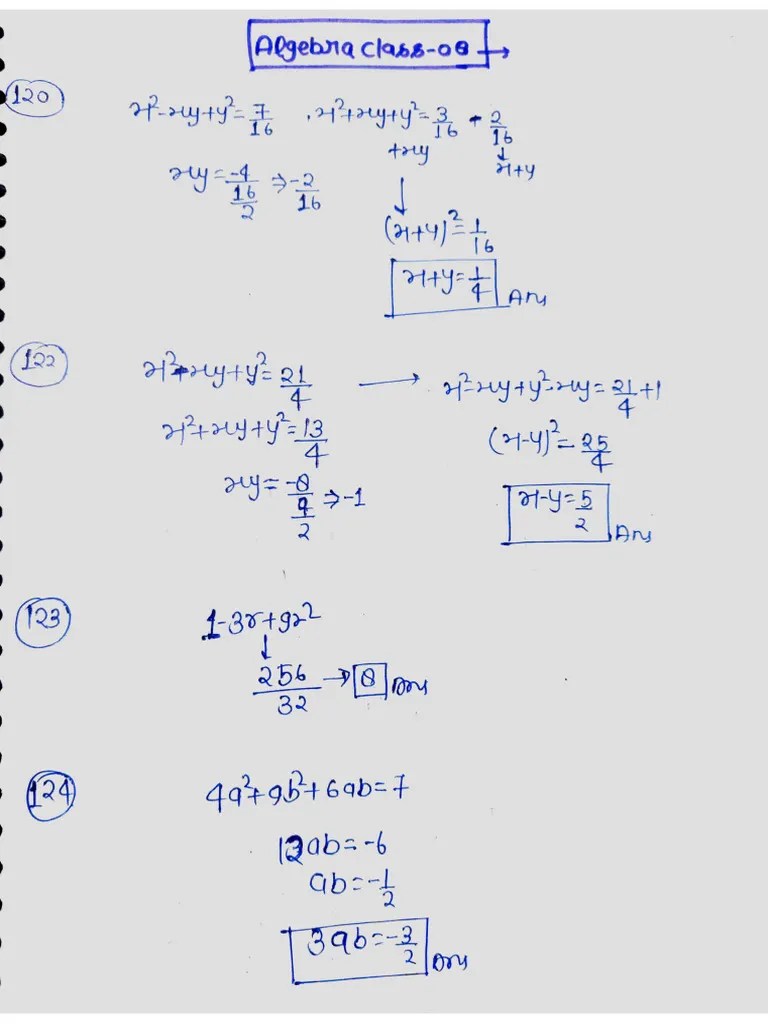 Algebra class-08 →
120
x²-xy+y²=7/16 , x²+xy+y²=3/16 - 2/16
+xy
↓
x+y
xy=-4/16/2 ⇒ -2/16
↓
(x+y)²=1/16
x+y=1/4 Ans
122
x²-xy+y²=21/4 → x²-xy+y²-xy=21/4+1
x²+xy+y²=13/4
(x-y)²=25/4
xy=-8/4/2 ⇒ -1
x-y=5/2 Ans
123
1-3x+9x²
↓
256/32 → 8 Ans
124
4a²+9b²+6ab=7
12ab=-6
ab=-1/2
3ab=-3/2 Ans